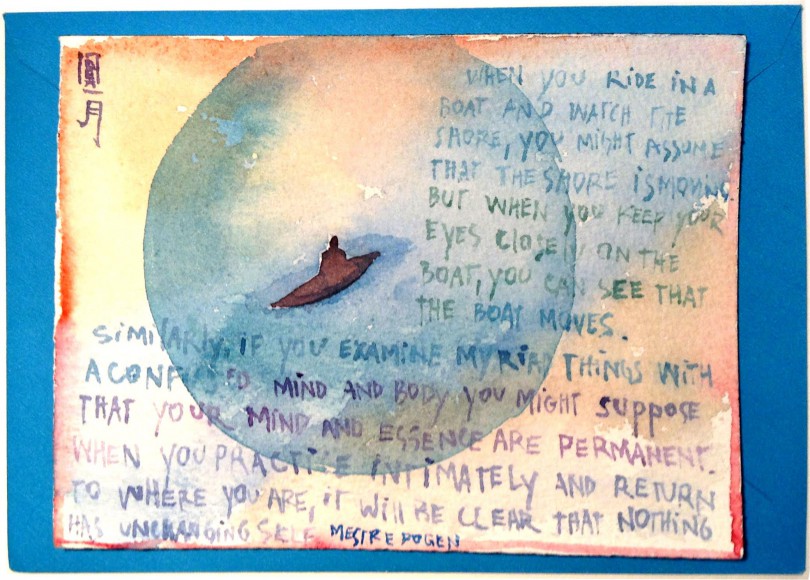 一月
WHEN YOU RIDE IN A
BOAT AND WATCH THE
SHORE, YOU MIGHT ASSUME
THAT THE SHORE IS MOVING.
BUT WHEN YOU KEEP YOUR
EYES CLOSELY ON THE
BOAT, YOU CAN SEE THAT
THE BOAT MOVES.
SIMILARLY, IF YOU EXAMINE MYRIAD THINGS WITH
A CONFUSED MIND AND BODY YOU MIGHT SUPPOSE
THAT YOUR MIND AND ESSENCE ARE PERMANENT.
WHEN YOU PRACTICE INTIMATELY AND RETURN
TO WHERE YOU ARE, IT WILL BE CLEAR THAT NOTHING
HAS UNCHANGING SELF. MESTRE DOGEN